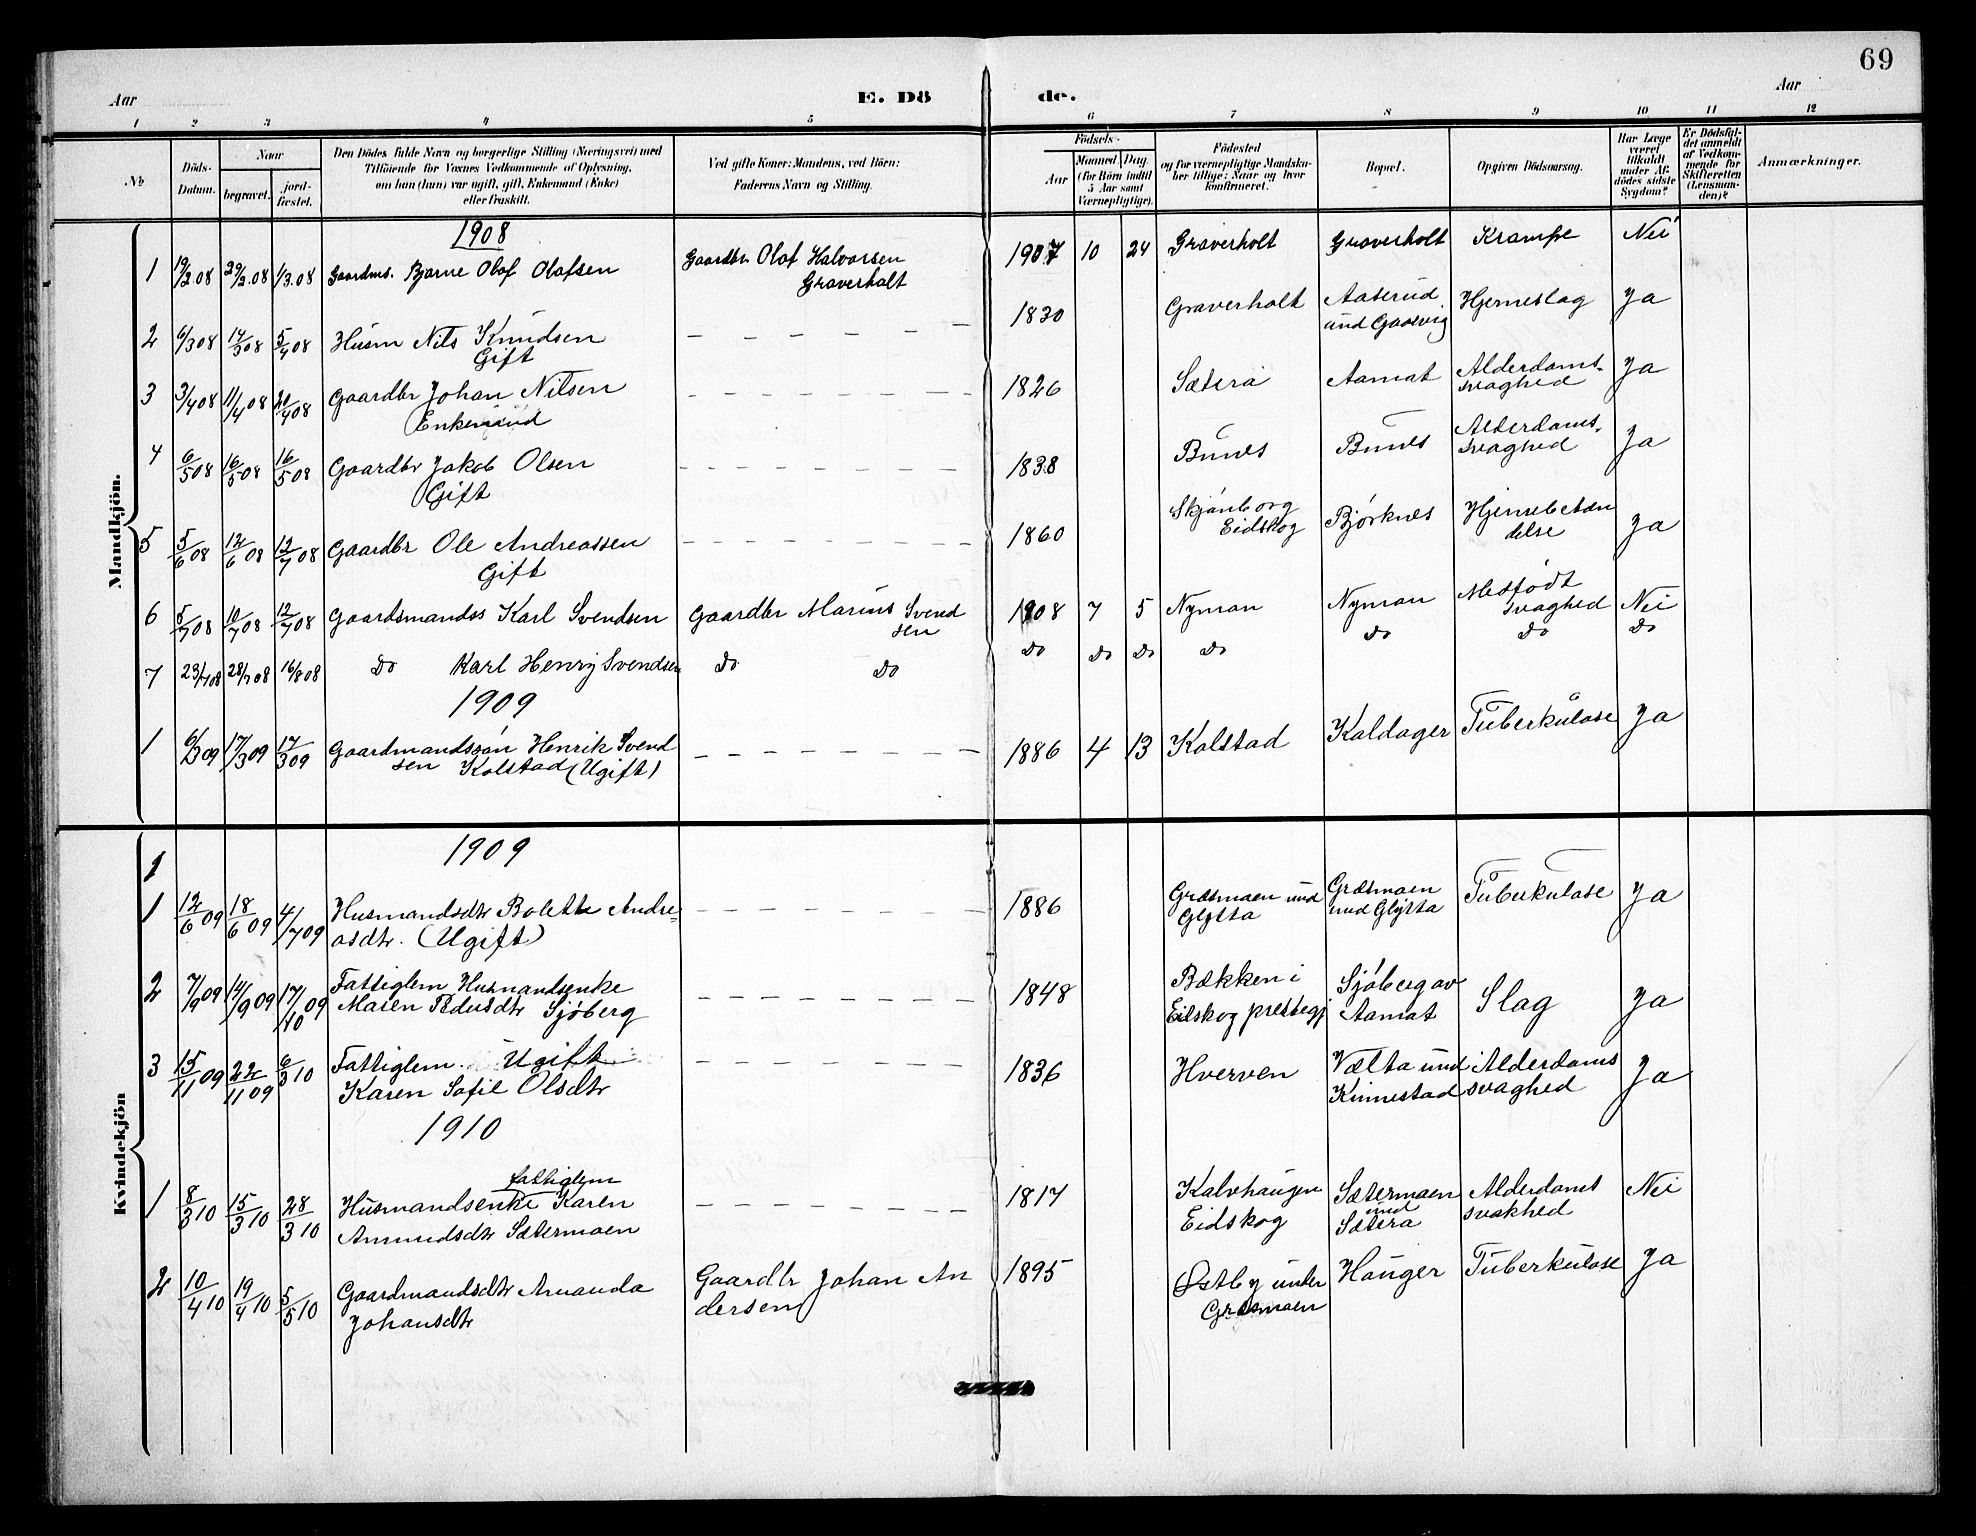 69
Aar
E. Dö
de.
Aar
1 2 3 4 5 6 7 8 9 10 11 12
No
Döds-Datum.
Naar
begravet.
jord-fæstet.
Den Dödes fulde Navn og borgerlige Stilling (Næringsvei) med
Tilföiende for Voxnes Vedkommende af Oplysning,
om han (hun) var ugift, gift, Enkemand (Enke)
eller fraskilt.
Ved gifte Koner: Mandens, ved Börn:
Faderens Navn og Stilling.
Födsels-
Aar
Maaned Dag.
(for Börn indtil
5 Aar samt
Værnepligtige).
Födested
og for værnepligtige Mandska-
ber tillige: Naar og hvor
konfirmeret.
Bopæl.
Opgiven Dödsaarsag.
Har Læge
været
tilkaldt
under Af-
dödes sidste
Sygdom?
Er Dödsfal-
det anmeldt
af Vedkom-
mende for
Skifteretten
(Lensman-
den)?
Anmærkninger.
Mandkjön.
1908
1 19/2 08 29/2 08 1/3 08 Gaardms. Bjarne Olaf Olafsen Gaardbr Olof Halvorsen Graverholt 1907 10 24 Graverholt Graverholt Krampe Nei
2 6/3 08 14/3 08 5/4 08 Husm Nils Knudsen Gift — — — 1830 Graverholt Aaserud und Gaasvig Hjerneslag Ja
3 3/4 08 11/4 08 20/4 08 Gaardbr Johan Nilsen Enkemand — — — 1826 Sætera Aamat Alderdoms-svaghed Ja
4 6/5 08 16/5 08 16/5 08 Gaardbr Jakob Olsen Gift — — — 1838 Bunes Bunes Alderdoms-svaghed Ja
5 5/6 08 12/6 08 12/7 08 Gaardbr Ole Andreassen Gift — — — 1860 Skjønborg Eidskog Bjørknes Hjernebetændelse Ja
6 5/7 08 10/7 08 12/7 08 Gaardsmandss Karl Svendsen Gaardbr Marius Svendsen 1908 7 5 Nyman Nyman Medfødt svaghed Nei
7 23/7 08 28/7 08 16/8 08 Do Karl Henry Svendsen Do Do Do Do Do Do Do Do Do
1909
1 6/3 09 17/3 09 17/3 09 Gaardmandssøn Henrik Svendsen Kolstad (Ugift) — — — 1886 4 13 Kolstad Kaldager Tuberkulose Ja
Kvindekjön
1909
1
1 12/6 09 18/6 09 4/7 09 Husmandsdtr Bolette Andreasdtr. (Ugift) — — — 1886 Græsmoen und Glysta Græsmoen und Glysta Tuberkulose Ja
2 7/9 09 14/9 09 17/10 09 Fattiglem Husmandsenke Maren Pedersdtr Sjøberg — — — 1848 Bækken i Eidskog prestegj Sjøberg av Aamat Slag Ja
3 15/11 09 22/11 09 6/3 10 Fattiglem Ugift Karen Sofie Olsdtr — — — 1836 Hverven Vælta und Kinnestad Alderdoms svaghed Ja
1910
1 8/3 10 15/3 10 28/3 10 fattiglem Husmandsenke Karen Amundsdtr Sætermoen — — — 1817 Kalvhaugen Eidskog Sætermoen und Sætera Alderdoms svakhed Nei
2 10/4 10 19/4 10 5/5 10 Gaardmandsdtr Amanda Johansdtr Gaardbr Johan Andersen 1895 Østby under Græsmoen Hauger Tuberkulose Ja